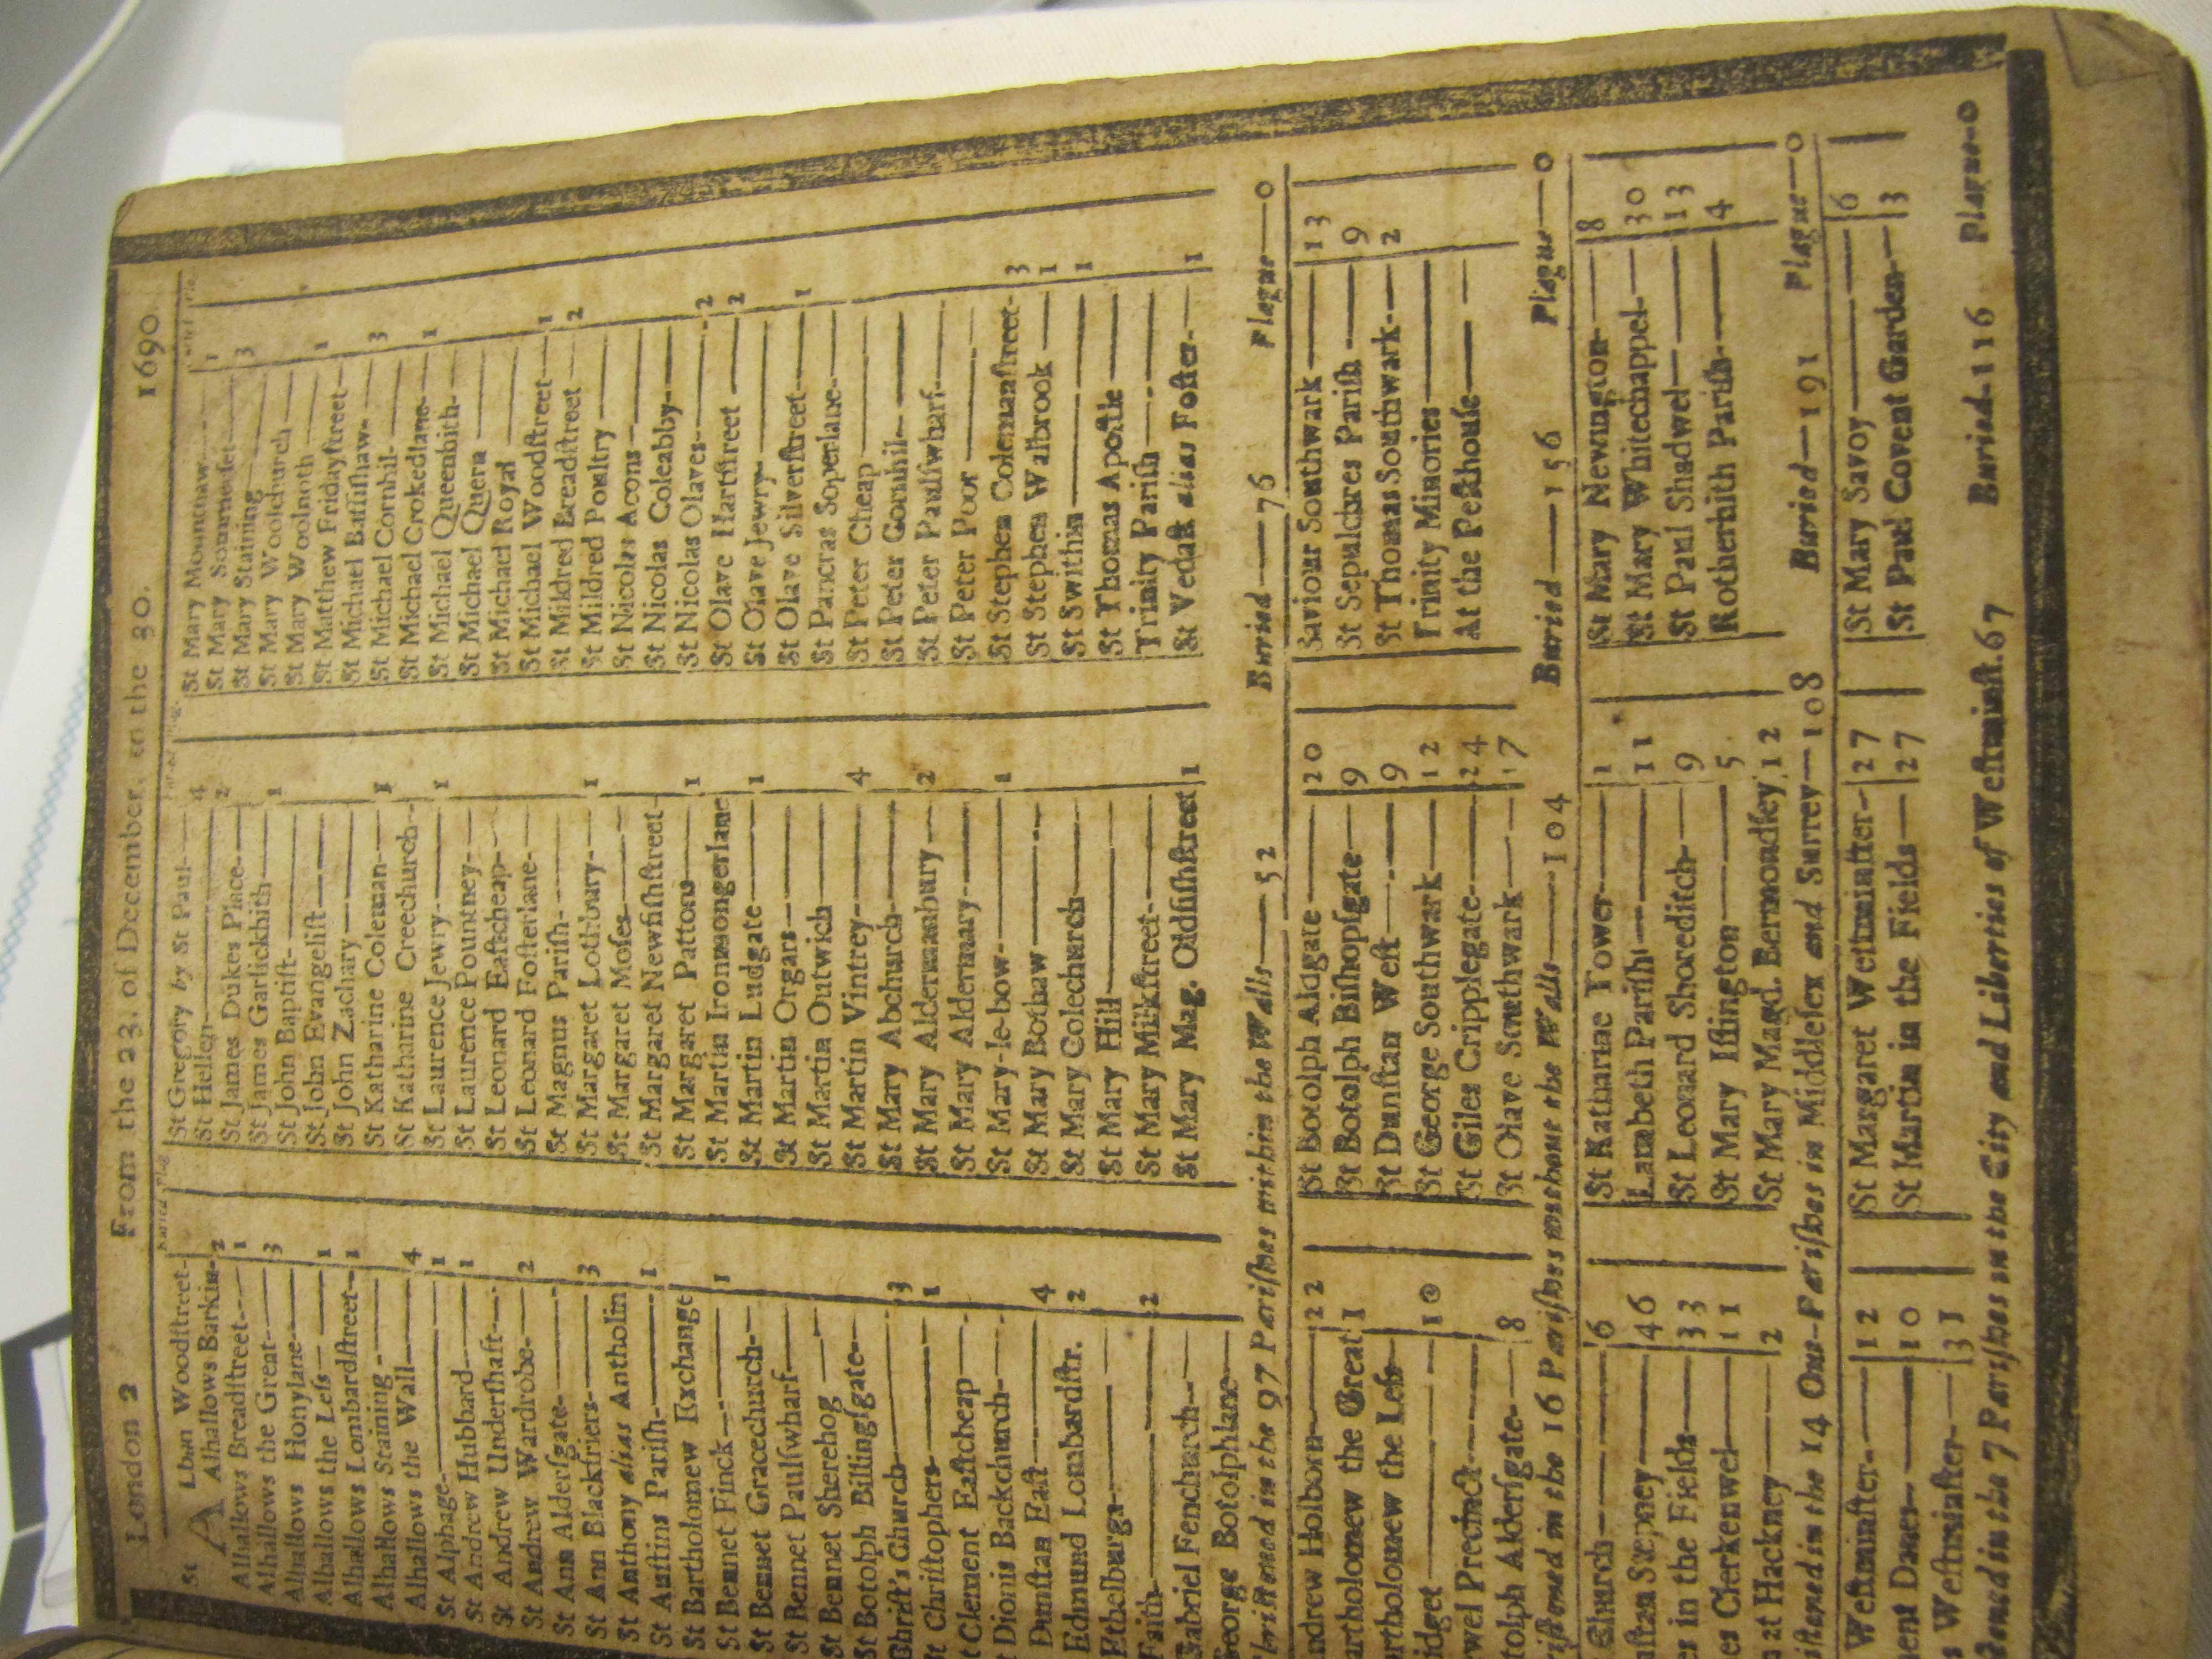 London 2 From the 23. of December, to the 30. 1690.
St Alban Woodſtreet
Alhallows Barkin 2
Alhallows Breadſtreet 1
Alhallows the Great 3
Alhallows Honylane
Alhallows the Leſs 1
Alhallows Lombardſtreet 1
Alhallows Staining
Alhallows the Wall 4
St Alphage 1
St Andrew Hubbard 1
St Andrew Underſhaft
St Andrew Wardrobe 2
St Ann Alderſgate
St Ann Blackfriers 3
St Anthony alias Antholin
St Auſtins Pariſh 1
St Bartholomew Exchange
St Bennet Finck 1
St Bennet Gracechurch
St Bennet Paulſwharf
St Bennet Sherehog
St Botolph Billingſgate
Chriſt's Church 3
St Chriſtophers 1
t Clement Eaſtcheap
Dionis Backchurch
Dunſtan Eaſt 4
Edmund Lombardſtr. 2
Ethelburga
Faith 2
Gabriel Fenchurch
George Botolphlane
St Gregory by St Paul
St Hellen 4
St James Dukes Place 2
St James Garlickhith 1
St John Baptiſt
St John Evangeliſt
St John Zachary
St Katharine Coleman 1
St Katharine Creechurch
St Laurence Jewry 1
St Laurence Pountney
St Leonard Eaſtcheap
St Leonard Foſterlane
St Magnus Pariſh
St Margaret Lothbury 1
St Margaret Moſes
St Margaret Newfiſhſtreet
St Margaret Pattons 1
St Martin Ironmongerlane
St Martin Ludgate 1
St Martin Orgars
St Martin Outwich
St Martin Vintrey 4
St Mary Abchurch
St Mary Aldermanbury 2
St Mary Aldermary
St Mary-le-bow 1
St Mary Bothaw
St Mary Colechurch
St Mary Hill
St Mary Milkſtreet
St Mary Mag. Oldfiſhſtreet 1
St Mary Mounthaw 1
St Mary Sommerſet 3
St Mary Staining
St Mary Woolchurch
St Mary Woolnoth 1
St Matthew Fridayſtreet
St Michael Baſſiſhaw 3
St Michael Cornhil
St Michael Crokedlane 1
St Michael Queenhith
St Michael Quern
St Michael Royal
St Michael Woodſtreet 1
St Mildred Breadſtreet 2
St Mildred Poultry
St Nicolas Acons
St Nicolas Coleabby
St Nicolas Olaves 2
St Olave Hartſtreet 2
St Olave Jewry
St Olave Silverſtreet 1
St Pancras Soperlane
St Peter Cheap
St Peter Cornhil
St Peter Paulſwharf
St Peter Poor
St Stephen Colemanſtreet 3
St Stephen Walbrook 1
St Swithin 1
St Thomas Apoſtle
Trinity Pariſh
St Vedaſt alias Foſter 1
hriſtned in the 97 Pariſhes within the Walls—52 Buried—76 Plague—0
ndrew Holborn 22
artholomew the Great 1
artholomew the Leſs
idget 10
ewel Precinct
tolph Alderſgate 8
St Botolph Aldgate 20
St Botolph Biſhopſgate 9
St Dunſtan Weſt 9
St George Southwark 12
St Giles Cripplegate 24
St Olave Southwark 17
Saviour Southwark 13
St Sepulchres Pariſh 9
St Thomas Southwark 2
Trinity Minories
At the Peſthouſe
riſtned in the 16 Pariſhes without the Walls—104 Buried—156 Plague—0
Church 6
nſtan Stepney 46
es in the Fields 33
es Clerkenwel 11
n at Hackney 2
St Katharine Tower 1
Lambeth Pariſh 11
St Leonard Shoreditch 9
St Mary Iſlington 5
St Mary Magd. Bermondſey 12
St Mary Newington 8
St Mary Whitechappel 30
St Paul Shadwel 13
Rotherhith Pariſh 4
iſtened in the 14 Out-Pariſhes in Middleſex and Surrey—108 Buried—191 Plague—0
Weſtminſter 12
ment Danes 10
s Weſtminſter 31
St Margaret Weſtminſter 27
St Martin in the Fields 27
St Mary Savoy 6
St Paul Covent Garden 3
ſtened in the 7 Pariſhes in the City and Liberties of Weſtminſt. 67 Buried-116 Plague-0